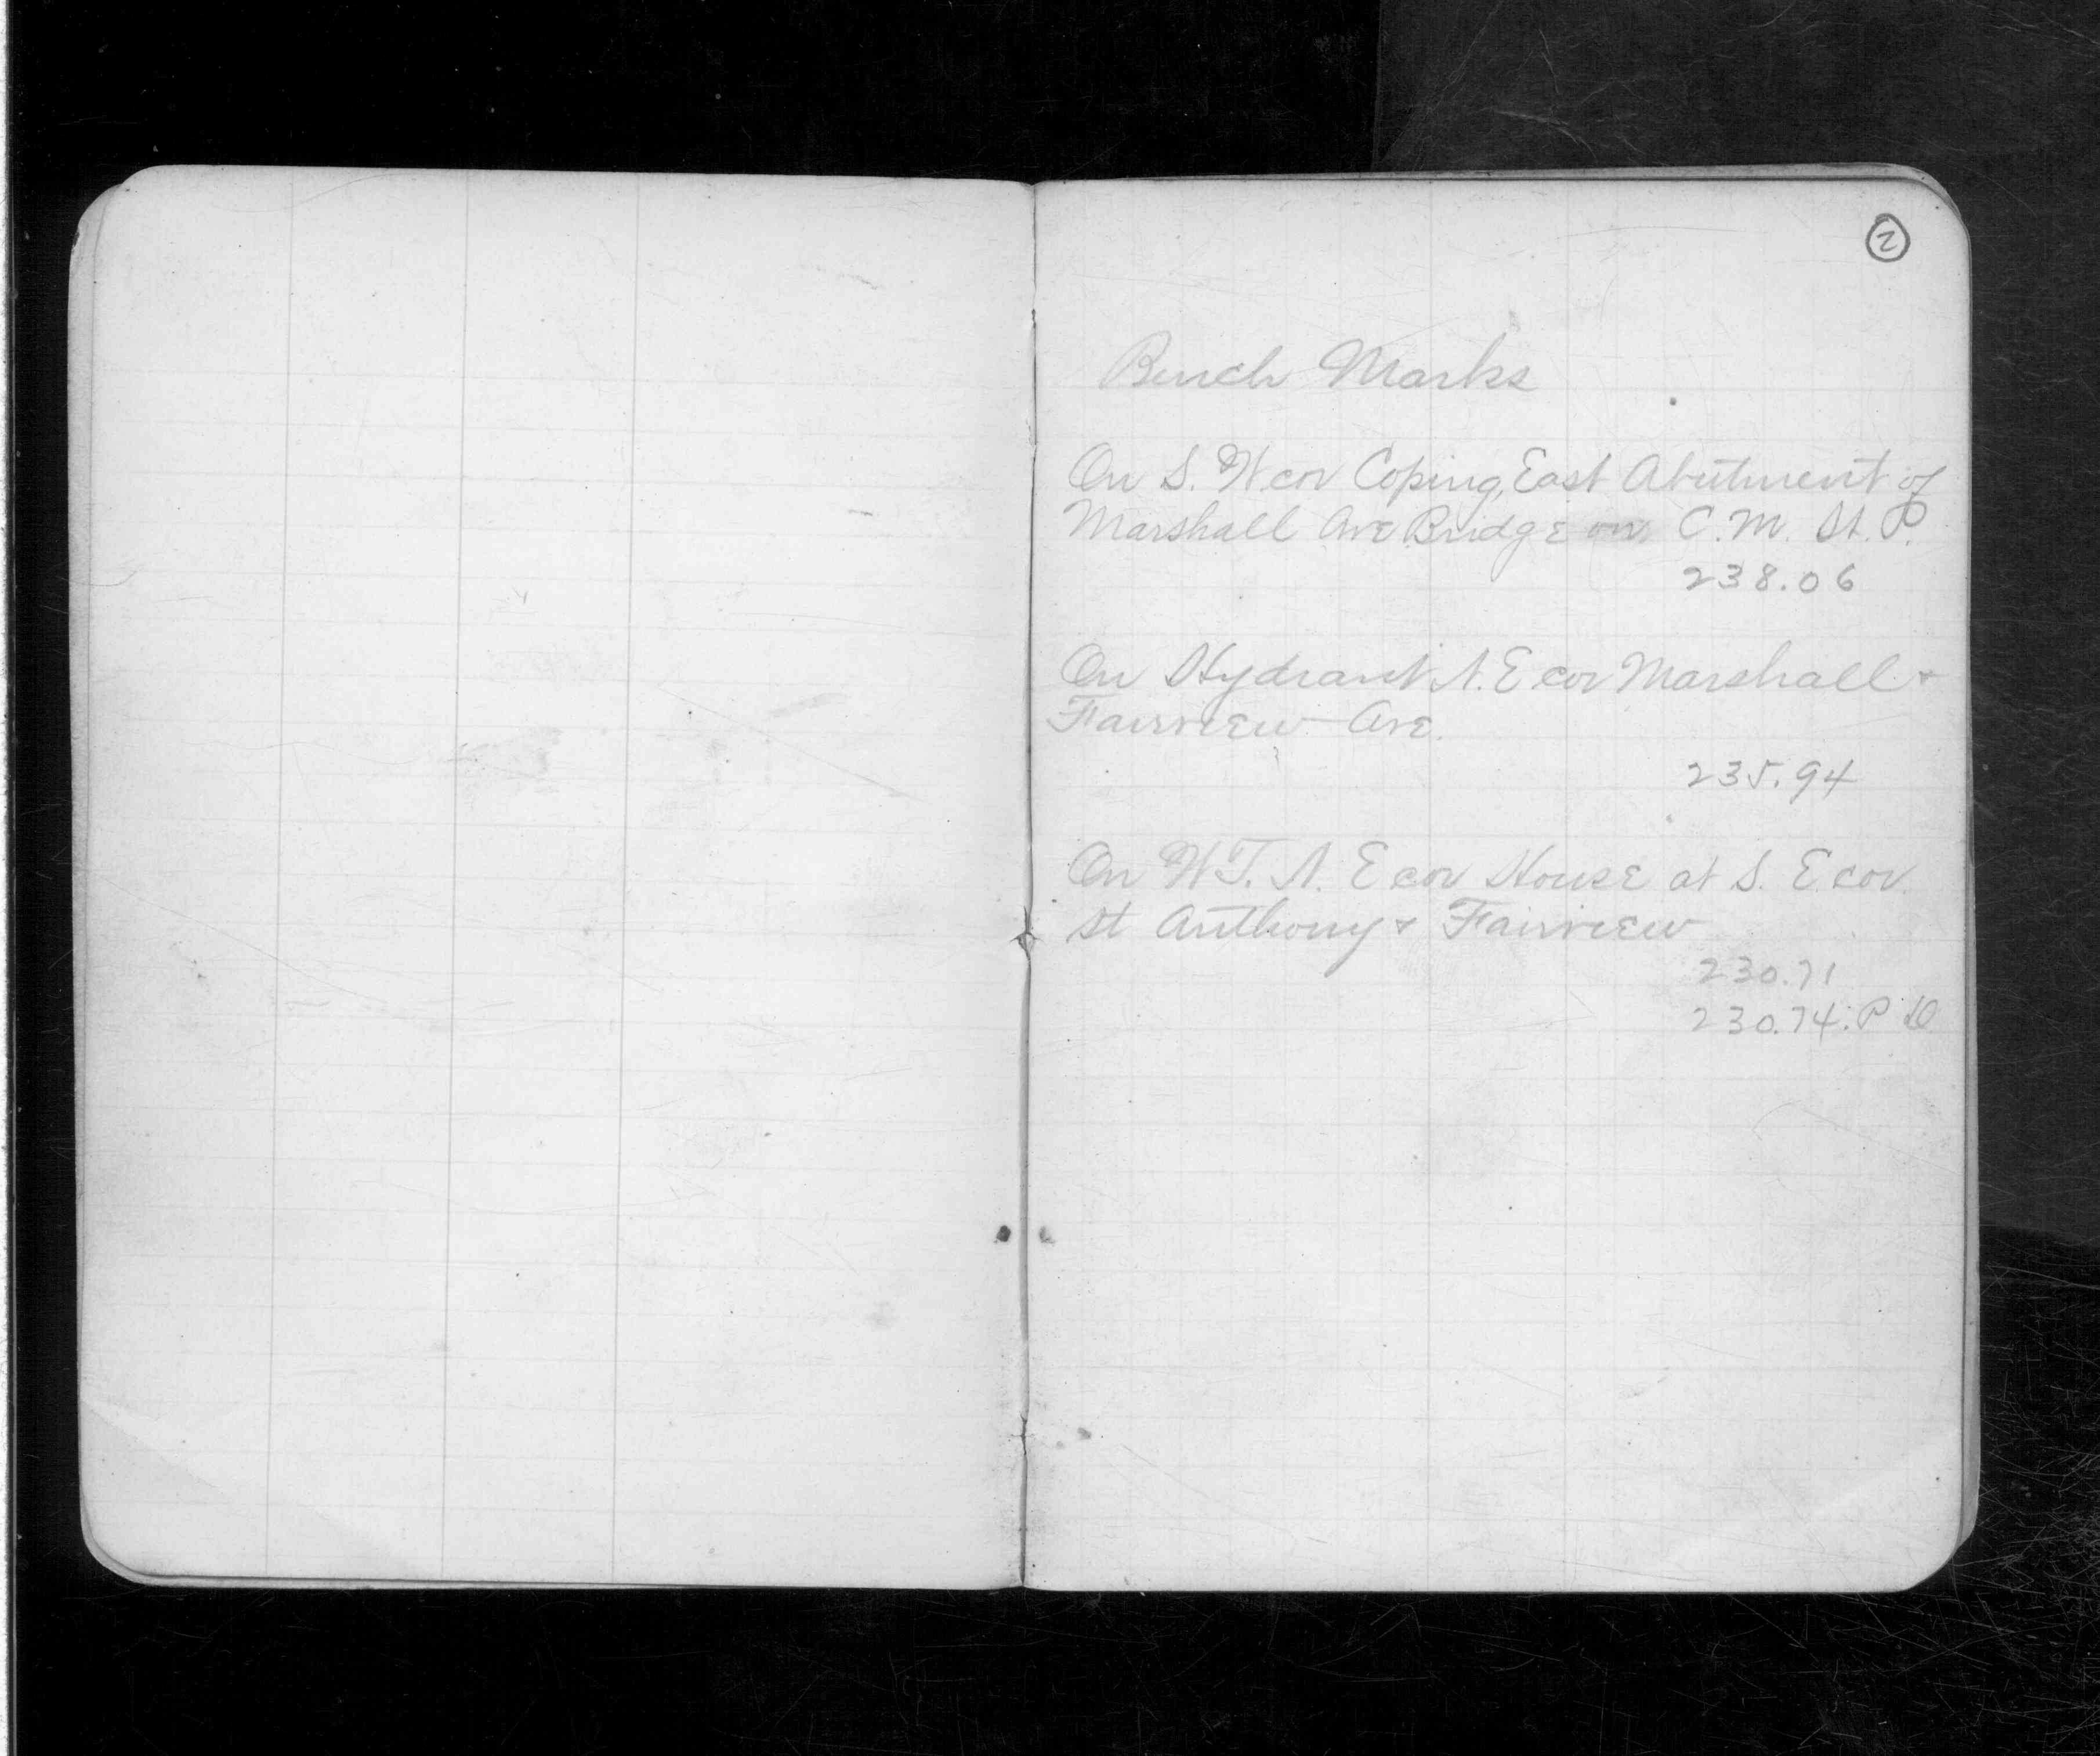 2
Bench Marks
On S. W. cor Coping, East Abutment of
Marshall Ave Bridge on C. M. St. P.
238.06
On Hydrant N. E cor Marshall &
Fairview Ave.
235.94
On W.T. N. E cor House at S. E cor.
St Anthony & Fairview
230.71
230.74. P